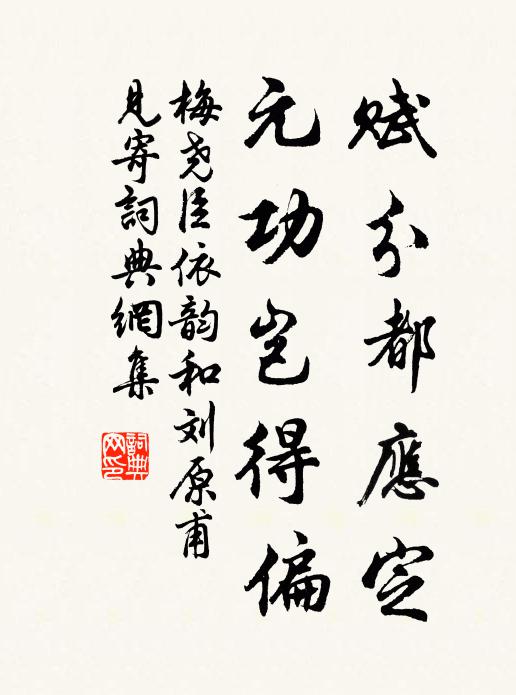 赋分都應定
元功岂得偏
梅尧臣依韵和刘原甫
見寄詞典網集
詞典
网印